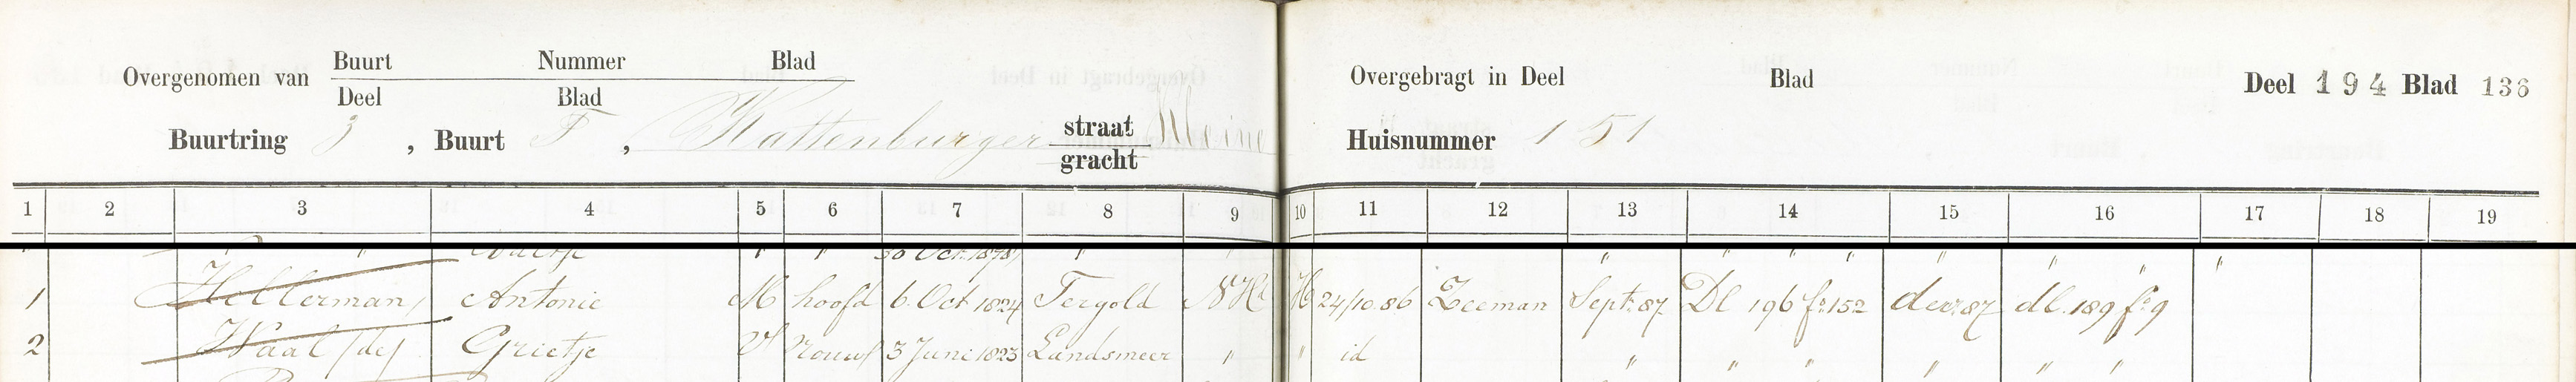 Overgenomen van Buurt Nummer Blad
Deel Blad
Overgebragt in Deel Blad
Deel 194 Blad 136
Buurtring 3, Buurt F, Kattenburger straat Kleine
gracht
Huisnummer 151
1 2 3 4 5 6 7 8 9 10 11 12 13 14 15 16 17 18 19
" " " " 30 Oct. 1878 " " " " " " " " " "
1 Hellerman, Antonie M hoofd 6 Oct 1824 Tergold NH H 24/10.86 Zeeman Sept. 87 Dl 196 fo. 152 dec. 87 dl. 189 fo 9
2 Waal (de) Grietje V Vrouw 3 Juni 1823 Landsmeer " " id " " " " " "